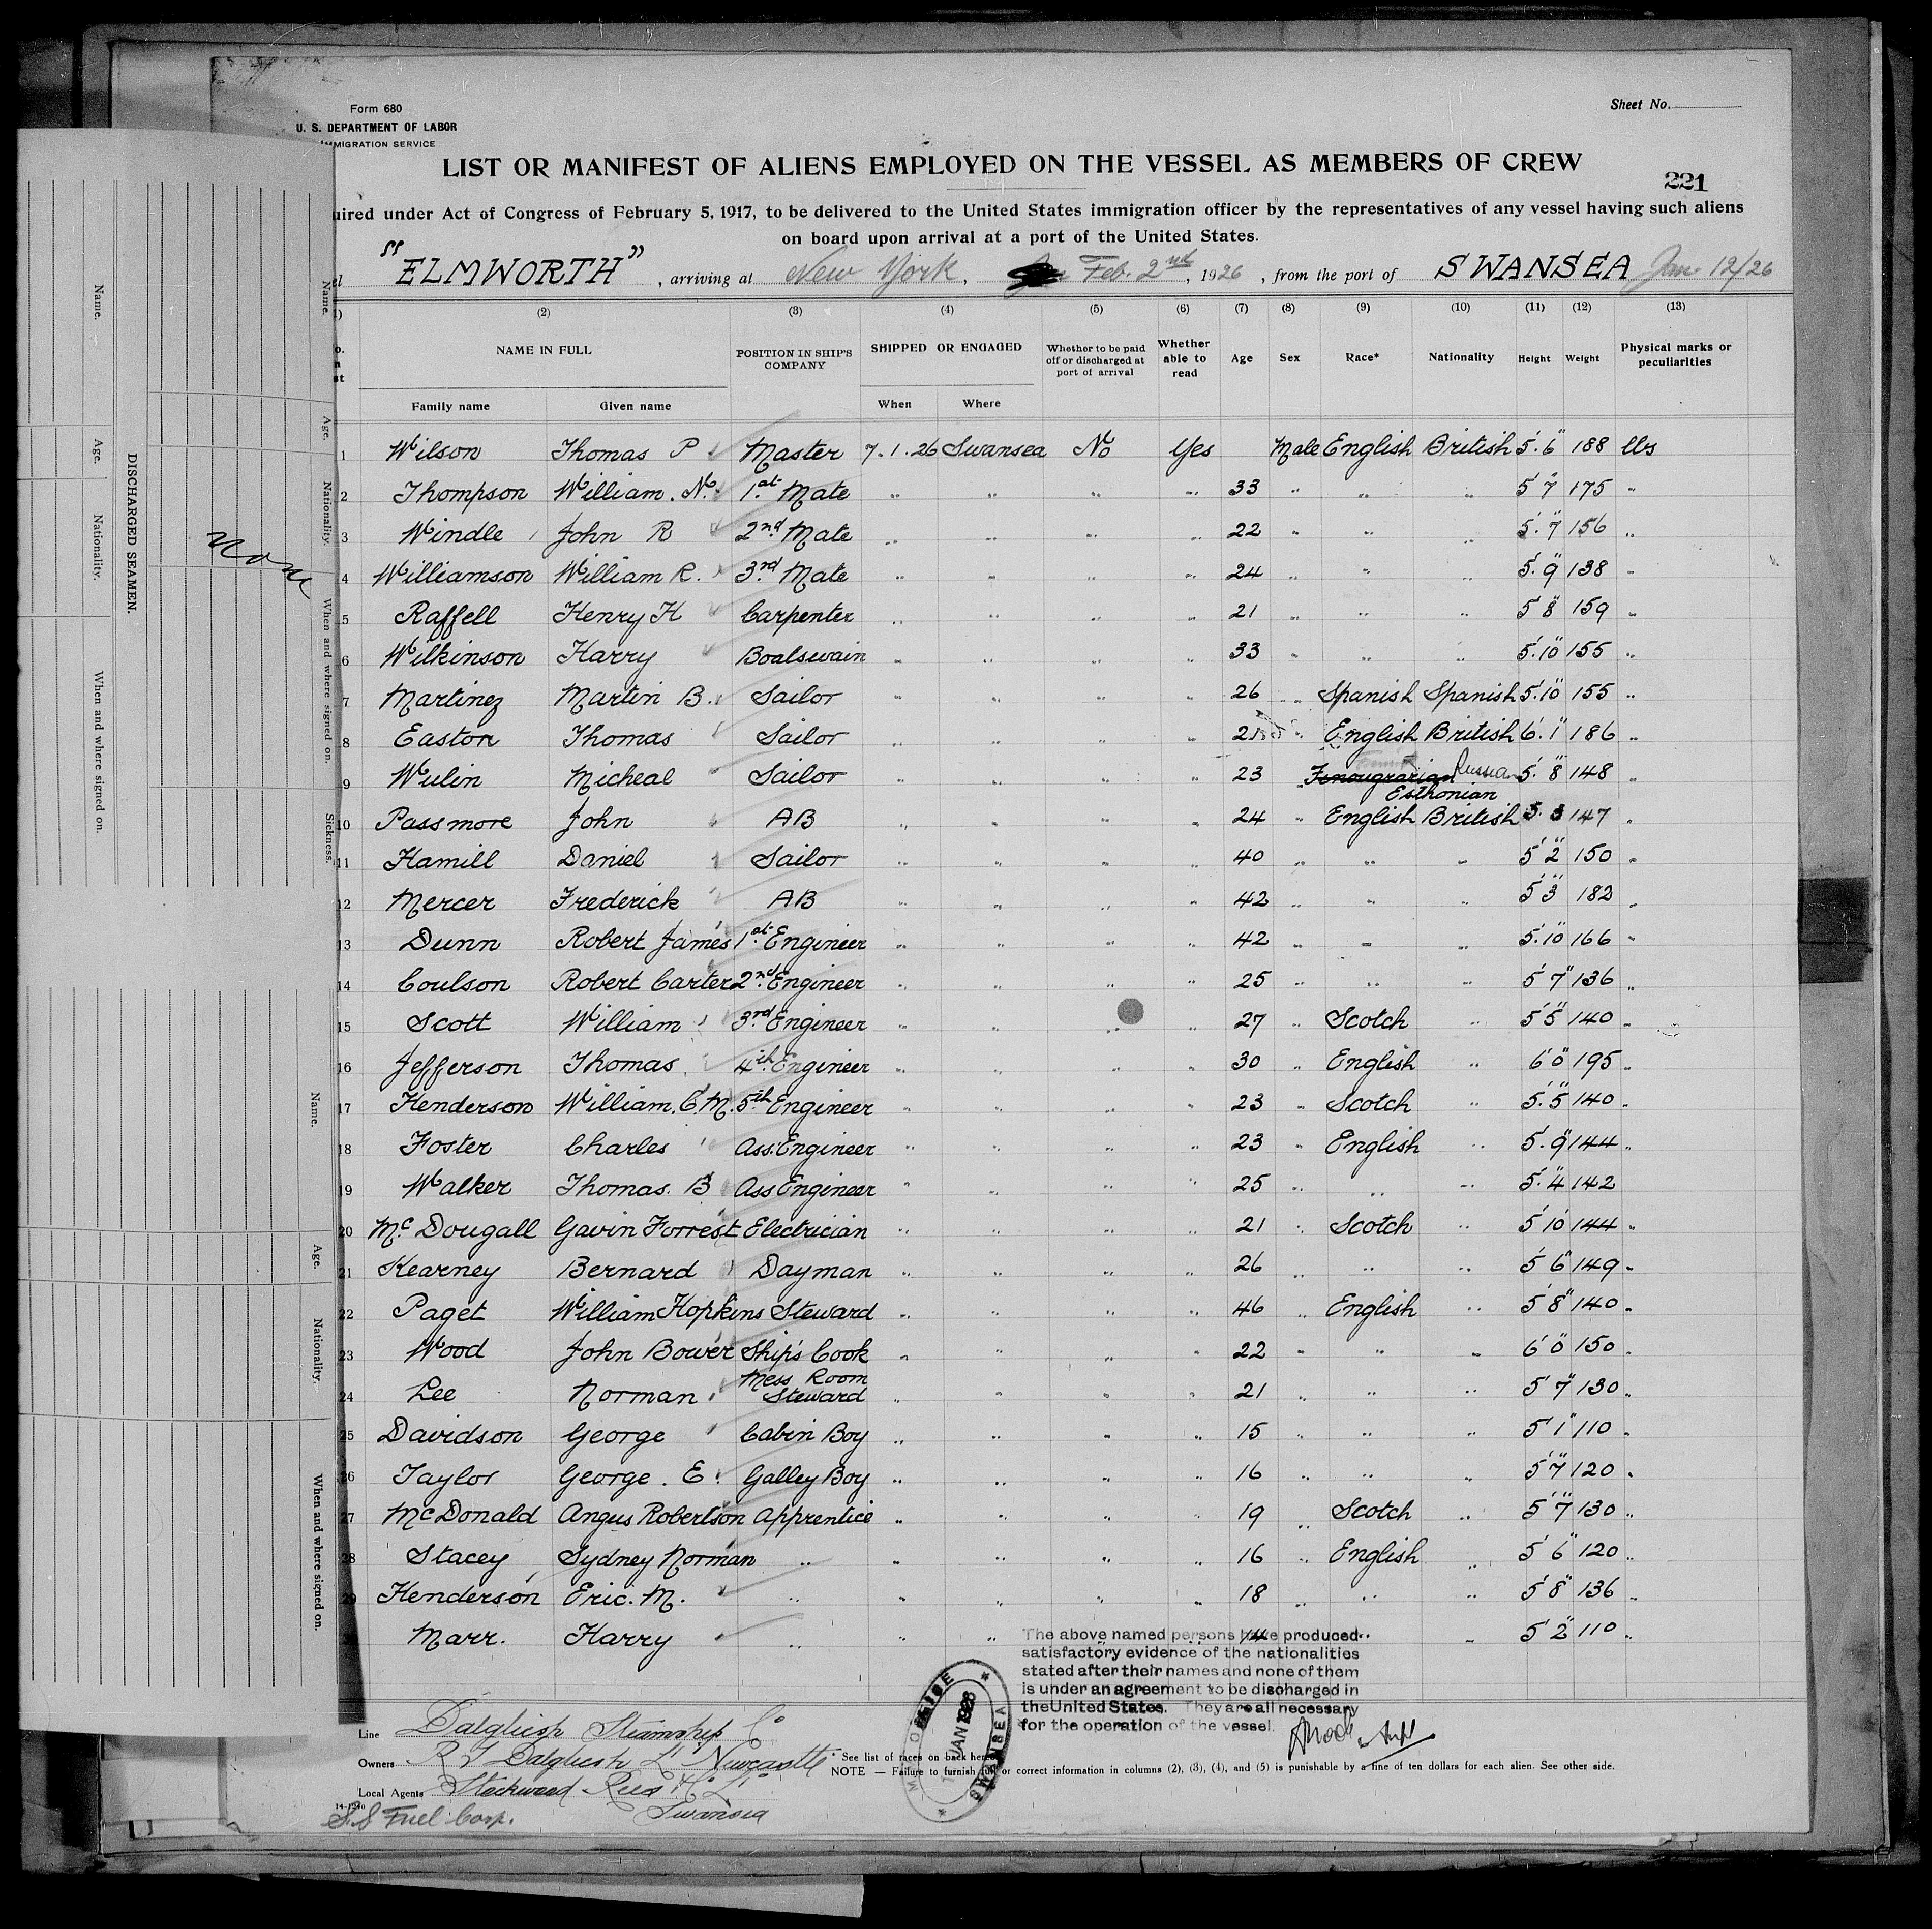 Form 680
U. S. DEPARTMENT OF LABOR
IMMIGRATION SERVICE
Sheet No.
LIST OR MANIFEST OF ALIENS EMPLOYED ON THE VESSEL AS MEMBERS OF CREW
221
uired under Act of Congress of February 5, 1917, to be delivered to the United States immigration officer by the representatives of any vessel having such aliens
on board upon arrival at a port of the United States.
el "ELMWORTH" , arriving at New York, Feb. 2nd, 1926 , from the port of SWANSEA Jan. 12/26
(2) (3) (4) (5) (6) (7) (8) (9) (10) (11) (12) (13)
NAME IN FULL POSITION IN SHIP'S COMPANY SHIPPED OR ENGAGED Whether to be paid off or discharged at port of arrival Whether able to read Age Sex Race* Nationality Height Weight Physical marks or peculiarities
Family name Given name When Where
1 Wilson Thomas P Master 7.1.26 Swansea No Yes Male English British 5'.6" 188 lbs
2 Thompson William. N. 1st Mate " " " " 33 " " " 5'7" 175 "
3 Windle John R 2nd Mate " " " " 22 " " " 5'.7" 156 "
4 Williamson William R. 3rd Mate " " " " 24 " " " 5'.9" 138 "
5 Raffell Henry H Carpenter " " " " 21 " " " 5'8" 159 "
6 Wilkinson Harry Boatswain " " " " 33 " " " 5'.10" 155 "
7 Martinez Martin B. Sailor " " " " 26 " Spanish Spanish 5'.10" 155 "
8 Easton Thomas Sailor " " " " 21 " English British 6'.1" 186 "
9 Wulin Micheal Sailor " " " " 23 " Russian 5'.8" 148 "
Esthonian
10 Passmore John AB " " " " 24 " English British 5'.3 147 "
11 Hamill Daniel Sailor " " " " 40 " " " 5'2" 150 "
12 Mercer Frederick AB " " " " 42 " " " 5'3" 182 "
13 Dunn Robert James 1st Engineer " " " " 42 " " " 5'.10" 166 "
14 Coulson Robert Carter 2nd Engineer " " " " 25 " " " 5'7" 136 "
15 Scott William 3rd Engineer " " " " 27 " Scotch " 5'5" 140 "
16 Jefferson Thomas 4th Engineer " " " " 30 " English " 6'0" 195 "
17 Henderson William. C. M. 5th Engineer " " " " 23 " Scotch " 5'.5" 140 "
18 Foster Charles Ass: Engineer " " " " 23 " English " 5'.9" 144 "
19 Walker Thomas. B Ass Engineer " " " " 25 " " " 5'.4" 142
20 McDougall Gavin Forrest Electrician " " " " 21 " Scotch " 5'10" 144 "
21 Kearney Bernard Dayman " " " " 26 " " " 5'6" 149 "
22 Paget William Hopkins Steward " " " " 46 " English " 5'8" 140 "
23 Wood John Bower Ship's Cook " " " " 22 " " " 6'0" 150 "
24 Lee Norman Mess Room Steward " " " " 21 " " " 5'7" 130 "
25 Davidson George Cabin Boy " " " " 15 " " " 5'1" 110 "
26 Taylor George. E. Galley Boy " " " " 16 " " " 5'7" 120 "
27 McDonald Angus Robertson Apprentice " " " " 19 " Scotch " 5'7" 130 "
28 Stacey Sydney Norman " " " " " 16 " English " 5'6" 120 "
29 Henderson Eric. M. " " " " " 18 " " " 5'8" 136 "
Marr. Harry " " " " " 14 " " 5'2" 110 "
The above named persons have produced
satisfactory evidence of the nationalities
stated after their names and none of them
is under an agreement to be discharged in
the United States. They are all necessary
for the operation of the vessel.
JAN 1926
SWANSEA
Line Dalgliesh Steamship Co
Owners R S Dalgliesh Ld Newcastle
* See list of races on back hereof
NOTE — Failure to furnish full or correct information in columns (2), (3), (4), and (5) is punishable by a fine of ten dollars for each alien. See other side.
Local Agents Stockwood Rees & Co Ld
Swansea
14-1240
S.S Fuel Corp.
Name.
Age.
Nationality.
When and where signed on.
DISCHARGED SEAMEN.
None
Name.
Age.
Nationality.
When and where signed on.
Sickness.
Name.
Age.
Nationality.
When and where signed on.